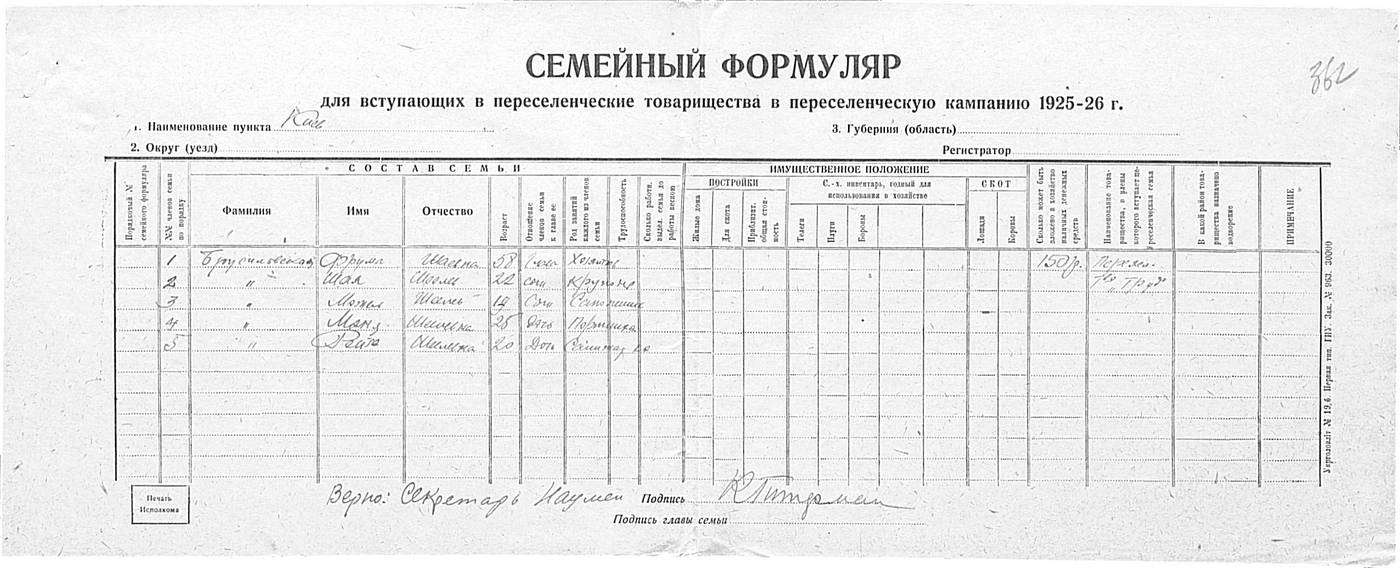 СЕМЕЙНЫЙ ФОРМУЛЯР
362
для вступающих в переселенческие товарищества в переселенческую кампанию 1925-26 г.
1. Наименование пункта Киев
3. Губерния (область)
2. Округ (уезд)
Регистратор
Порядковый № семейного формуляра
№№ членов семьи по порядку
СОСТАВ СЕМЬИ
Фамилия
Имя
Отчество
Возраст
Отношение членов семьи к главе ее
Род занятий каждого из членов семьи
Трудоспособность
Сколько работн. выдел. семья до работы весною
ИМУЩЕСТВЕННОЕ ПОЛОЖЕНИЕ
ПОСТРОЙКИ
Жилые дома
Для скота
Приблизит. общая стоимость
С.-х. инвентарь, годный для использования в хозяйстве
Телеги
Плуги
Бороны
СКОТ
Лошади
Коровы
Сколько может быть вложено в хозяйство наличных денежных средств
Наименование товарищества, в члены которого вступает переселенческая семья
В какой район товарищества назначено водворение
ПРИМЕЧАНИЕ
1 Брусиловская Фрума 58 150 р.
2 " Шая 22 сын
3 " 19 Сын
4 " Маня 25 Дочь Портниха
5 " 20 Дочь
Печать Исполкома
Верно: Секретарь Подпись
Подпись главы семьи
Укрголовліт № 19,6. Первая тип. ГИУ. Зак. № 963. 30000